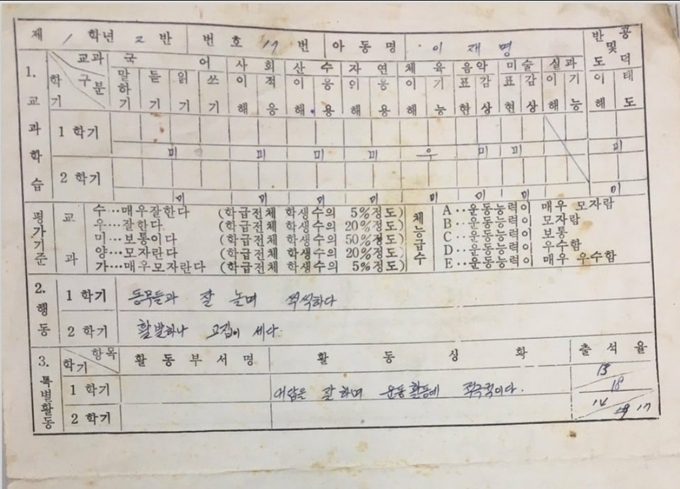 제 1 학년 2 반 번호 17 번 아동명 이재명
반공 및 도덕
교과 국어 사회 산수 자연 체육 음악 미술 실과
구분 학기 말하기 듣기 읽기 쓰기 이해 적응 이해 응용 이해 응용 이해 기능 표현 감상 표현 감상 이해 기능 이해 태도
1. 교과학습
1 학기
미 미 미 미 우 미 미 미
2 학기
미 미 미 미 미 미 미 미
평가기준 교과
수…매우잘한다 (학급전체 학생수의 5%정도)
우…잘한다 (학급전체 학생수의 20%정도)
미…보통이다 (학급전체 학생수의 50%정도)
양…모자란다 (학급전체 학생수의 20%정도)
가…매우모자란다 (학급전체 학생수의 5%정도)
체능급수
A…운동능력이 매우 모자람
B…운동능력이 모자람
C…운동능력이 보통
D…운동능력이 우수함
E…운동능력이 매우 우수함
2. 행동
1 학기 동무들과 잘 놀며 씩씩하다
2 학기 활발하나 고집이 세다.
3. 특별활동
항목 학기 활동부서명 활동상황 출석율
1 학기 대답은 잘 하며 운동활동에 적극적이다.
2 학기